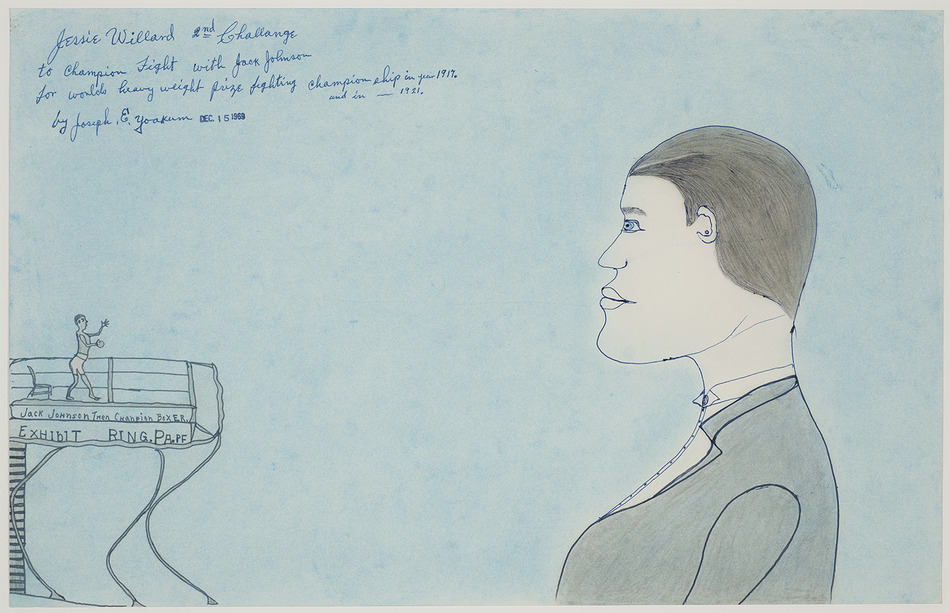 Jessie Willard 2nd Challange
to Champion Fight with Jack Johnson
for world's heavy weight prize fighting championship in year 1917.
and in — 1921.
by Joseph E. Yoakum DEC. 15 1969
Jack Johnson Then Champion BoxER.
ExHIbIT RING. PA. PF